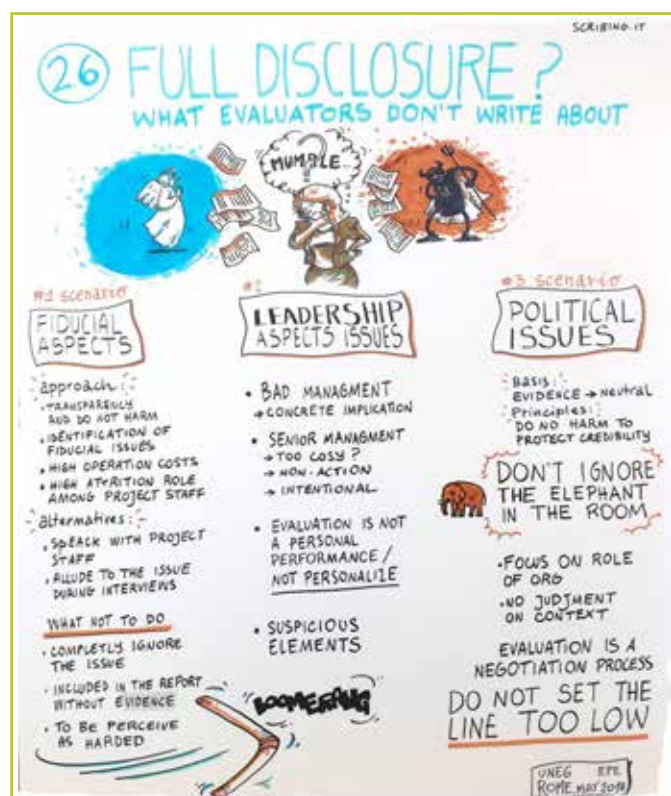 SCRIBING.IT
26 FULL DISCLOSURE?
WHAT EVALUATORS DON'T WRITE ABOUT
MUMBLE
?
#1 scenario
FIDUCIAL
ASPECTS
approach:
• TRANSPARENCY
AND DO NOT HARM
• IDENTIFICATION OF
FIDUCIAL ISSUES
• HIGH OPERATION COSTS
• HIGH ATTRITION ROLE
AMONG PROJECT STAFF
alternatives:
• SPEACK WITH PROJECT
STAFF
• ALLUDE TO THE ISSUE
DURING INTERVIEWS
WHAT NOT TO DO
• COMPLETLY IGNORE
THE ISSUE
• INCLUDED IN THE REPORT
WITHOUT EVIDENCE
• TO BE PERCEIVE
AS HARDED
LEADERSHIP
ASPECTS ISSUES
• BAD MANAGMENT
→ CONCRETE IMPLICATION
• SENIOR MANAGMENT
→ TOO COSY?
→ NON-ACTION
→ INTENTIONAL
• EVALUATION IS NOT
A PERSONAL
PERFORMANCE/
NOT PERSONALIZE
• SUSPICIOUS
ELEMENTS
BOOMERANG
#3 scenario
POLITICAL
ISSUES
Basis:
EVIDENCE → Neutral
Principles:
DO NO HARM TO
PROTECT CREDIBILITY
DON'T IGNORE
THE ELEPHANT
IN THE ROOM
• FOCUS ON ROLE
OF ORG
• NO JUDTMENT
ON CONTEXT
EVALUATION IS A
NEGOTIATION PROCESS
DO NOT SET THE
LINE TOO LOW
UNEG EPE
ROME, MAY 2018